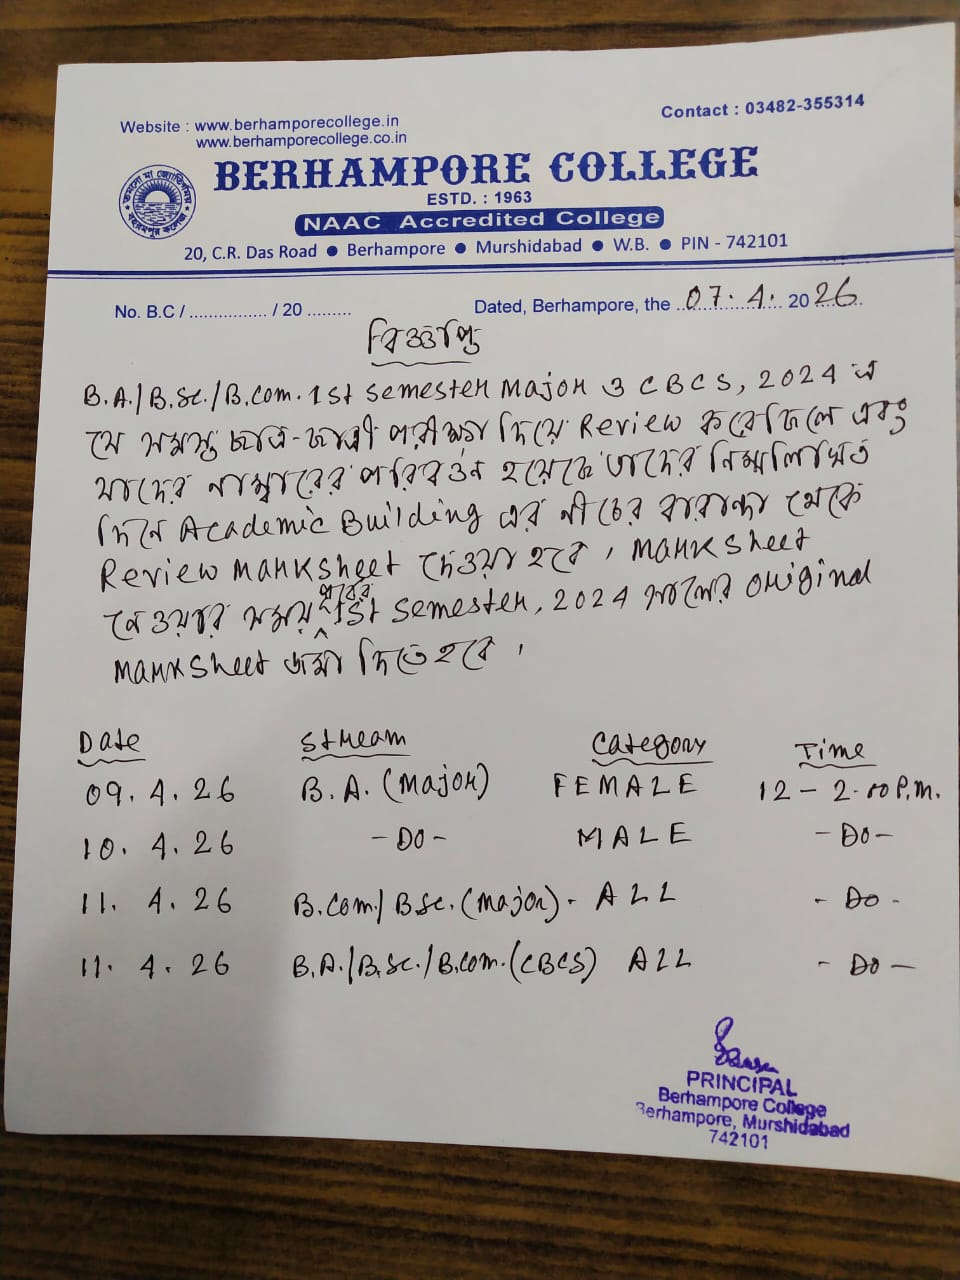 Website : www.berhamporecollege.in
www.berhamporecollege.co.in
Contact : 03482-355314
তমসো মা জ্যোতির্গময়
বহরমপুর কলেজ
BERHAMPORE COLLEGE
ESTD. : 1963
NAAC Accredited College
20, C.R. Das Road ● Berhampore ● Murshidabad ● W.B. ● PIN - 742101
No. B.C / ................ / 20 .........
Dated, Berhampore, the 07.4. 2026.
বিজ্ঞপ্তি
B.A./B.Sc./B.Com. 1st Semester Major ও CBCS, 2024 এ
যে সমস্ত ছাত্র-ছাত্রী পরীক্ষা দিয়ে Review করেছিলে এবং
যাদের নাম্বারের পরিবর্তন হয়েছে তাদের নিম্নলিখিত
দিনে Academic Building এর নীচের বারান্দা থেকে
Review Marksheet দেওয়া হবে। Marksheet
নেওয়ার সময় পূর্বের 1st Semester, 2024 সালের Original
Marksheet জমা দিতে হবে।
Date Stream Category Time
09.4.26 B.A. (Major) FEMALE 12 - 2.00 P.M.
10.4.26 -DO- MALE -DO-
11.4.26 B.Com/BSc. (Major) - ALL - DO -
11.4.26 B.A./B.Sc./B.Com. (CBCS) ALL - DO -
PRINCIPAL
Berhampore College
Berhampore, Murshidabad
742101